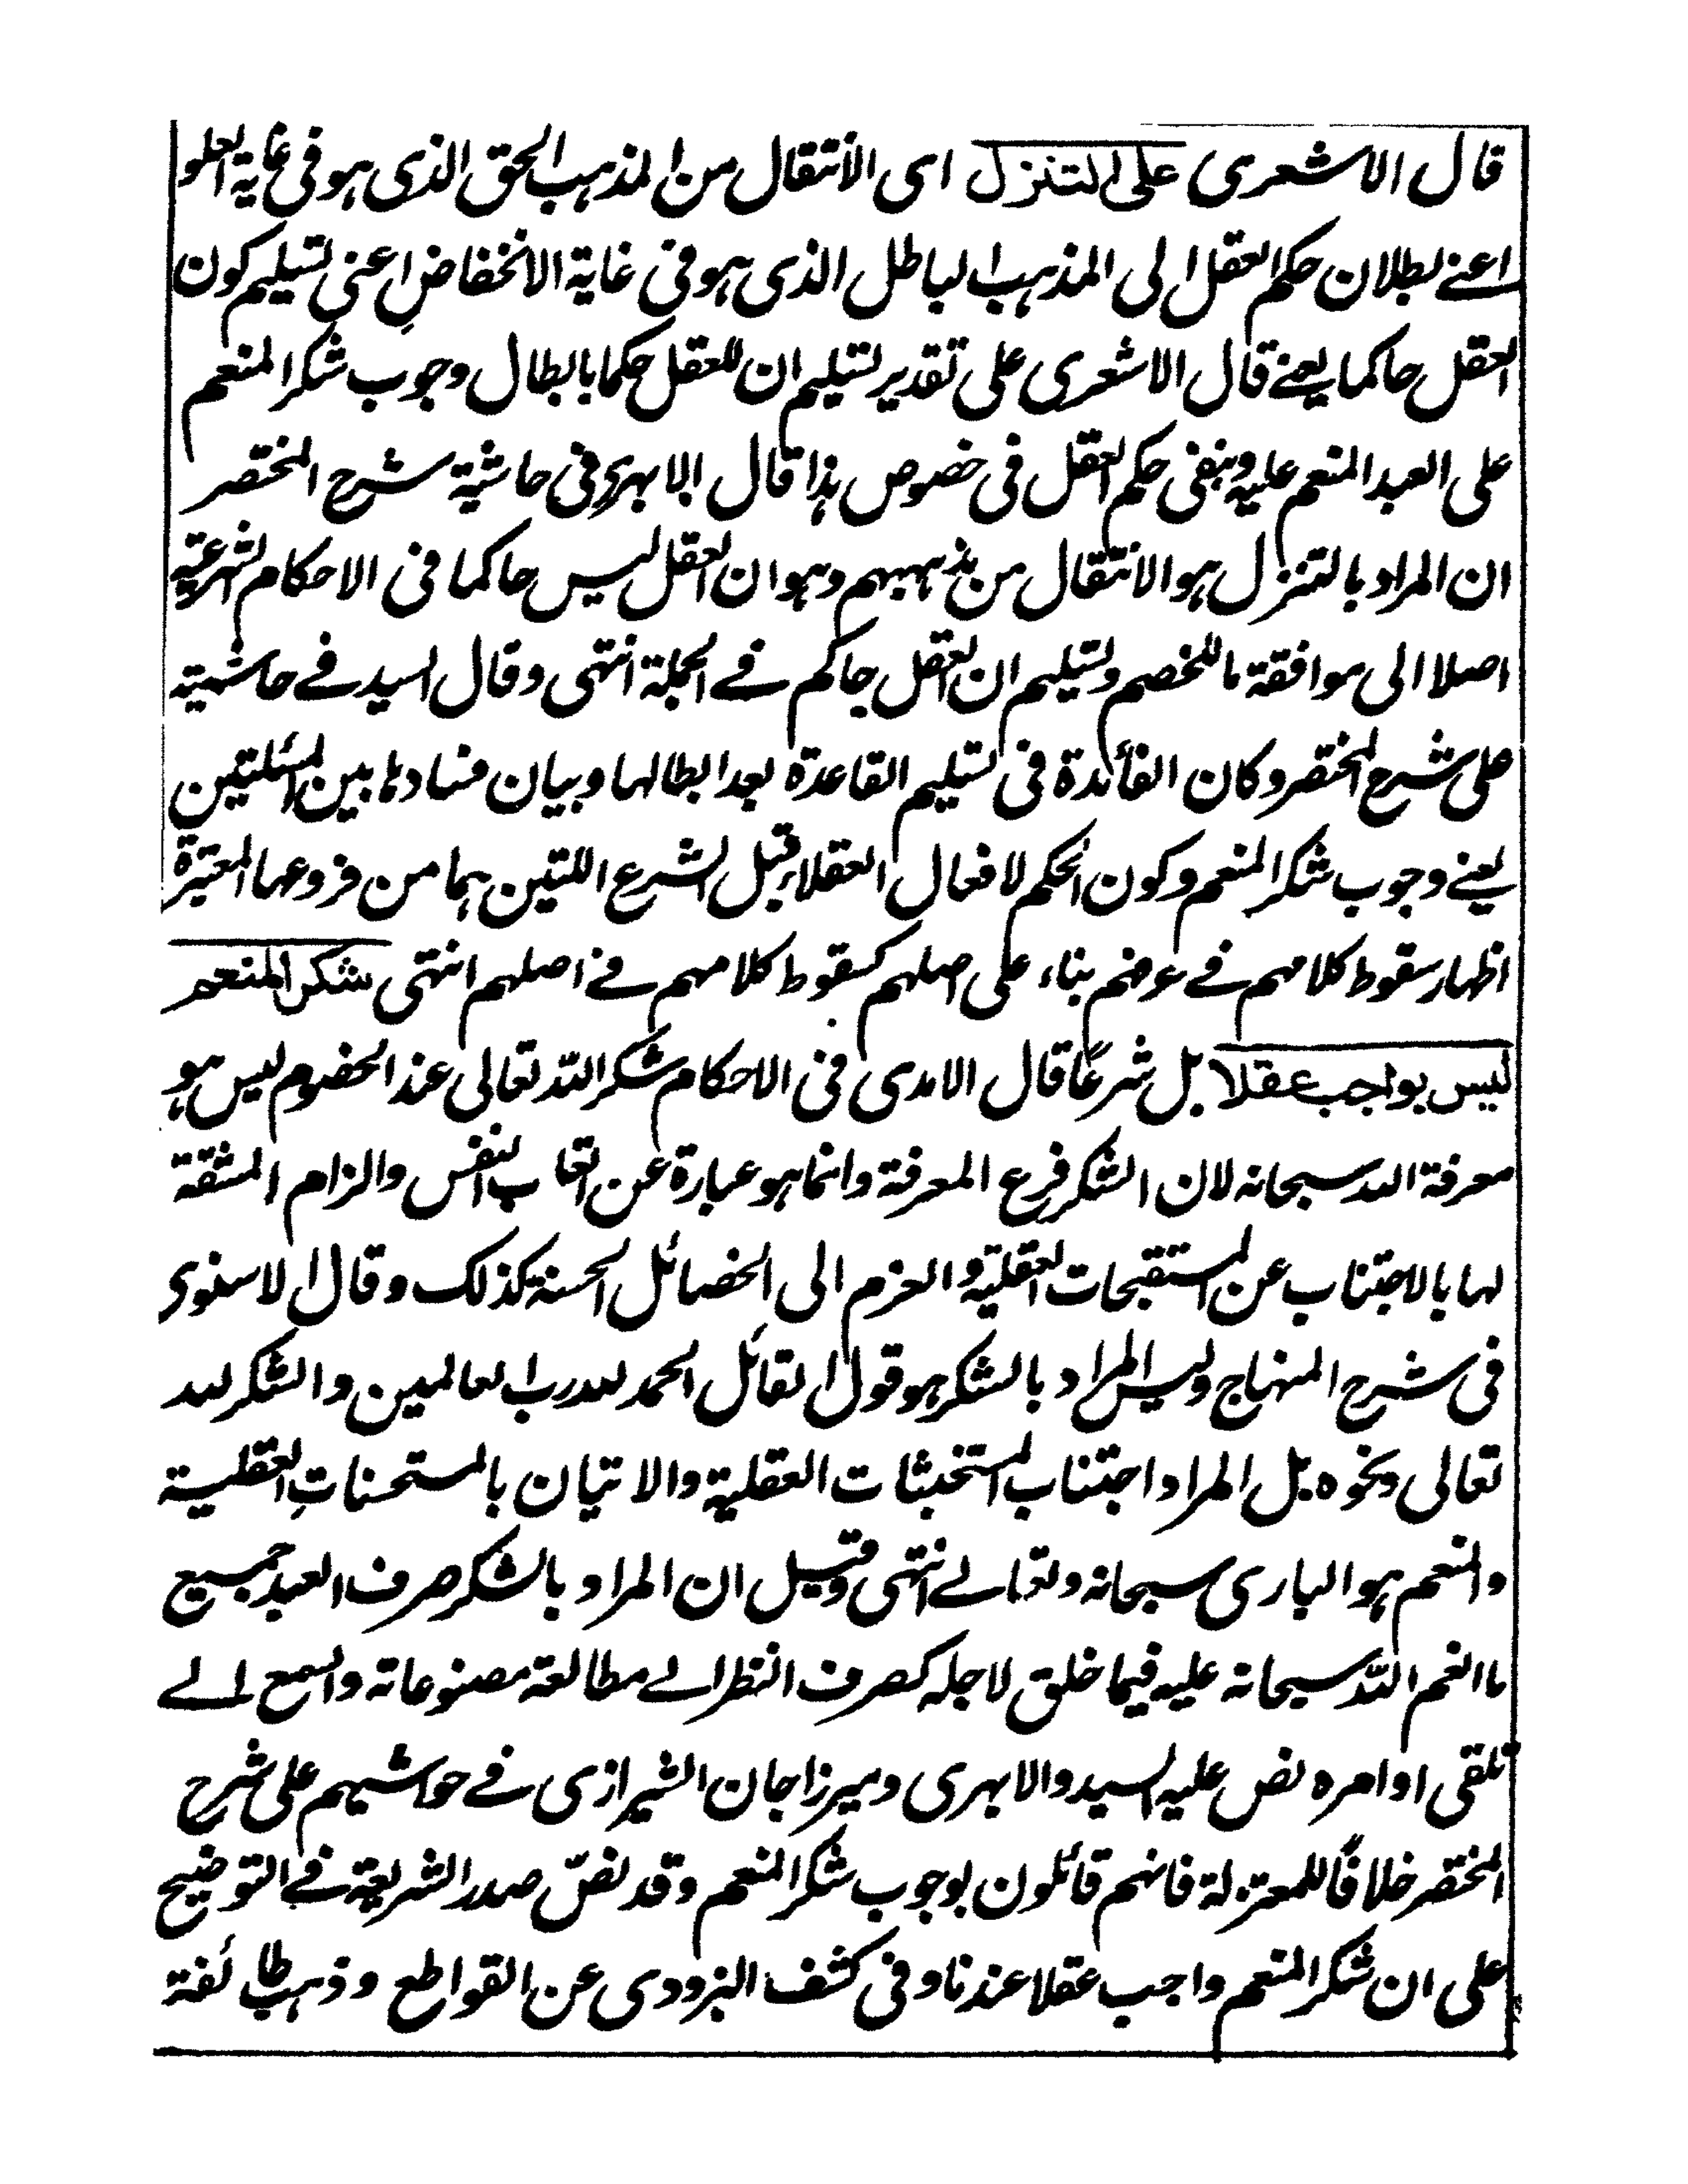 قال الاشعرى على التنزل اى الانتقال من المذهب الحق الذى هو فى غاية العلو
اعنے بطلان حكم العقل الى المذهب الباطل الذى هو فى غاية الانخفاض اعنى تسليم كون
العقل حاكما يعنے قال الاشعرى على تقدير تسليم ان للعقل حكما بابطال وجوب شكر المنعم
على العبد المنعم عليه وبنفى حكم العقل فى خصوص هذا قال الابهرى فى حاشية شرح المختصر
ان المراد بالتنزل هو الانتقال من مذهبهم وهو ان العقل ليس حاكما فى الاحكام الشرعية
اصلا الى موافقة ما للخصم وتسليم ان العقل حاكم فے الجملة انتهى وقال السيد فے حاشيته
على شرح المختصر وكان الفائدة فى تسليم القاعدة بعد ابطالها وبيان فسادها بين المسئلتين
يعنے وجوب شكر المنعم وكون الحكم لافعال العقلاء قبل الشرع اللتين هما من فروعها المعتبرة
اظهار سقوط كلامهم فے عرضهم بناء على اصلهم كسقوط كلامهم فے اصلهم انتهى شكر المنعم
ليس بواجب عقلا بل شرعًا قال الامدى فى الاحكام شكر الله تعالى عند الخصوم ليس هو
معرفة الله سبحانه لان الشكر فرع المعرفة وانما هو عبارة عن اتعاب النفس والزام المشقة
لها بالاجتناب عن المستقبحات العقلية والعزم الى الخصائل الحسنة كذلك وقال الاسنوى
فى شرح المنهاج وليس المراد بالشكر هو قول القائل الحمد لله رب العالمين والشكر لله
تعالى ونحوه بل المراد اجتناب المستخبثات العقلية والاتيان بالمستحسنات العقلية
والمنعم هو البارى سبحانه وتعالے انتهى وقيل ان المراد بالشكر صرف العبد جميع
ما انعم الله سبحانه عليه فيما خلق لاجله كصرف النظر الے مطالعة مصنوعاته والسمع الے
تلقى اوامره نص عليه السيد والابهرى وميرزا جان الشيرازى فے حواشيهم على شرح
المختصر خلافًا للمعتزلة فانهم قائلون بوجوب شكر المنعم وقد نصّ صدر الشريعة فے التوضيح
على ان شكر المنعم واجب عقلا عندنا وفى كشف البزودى عن القواطع وذهب طائفة